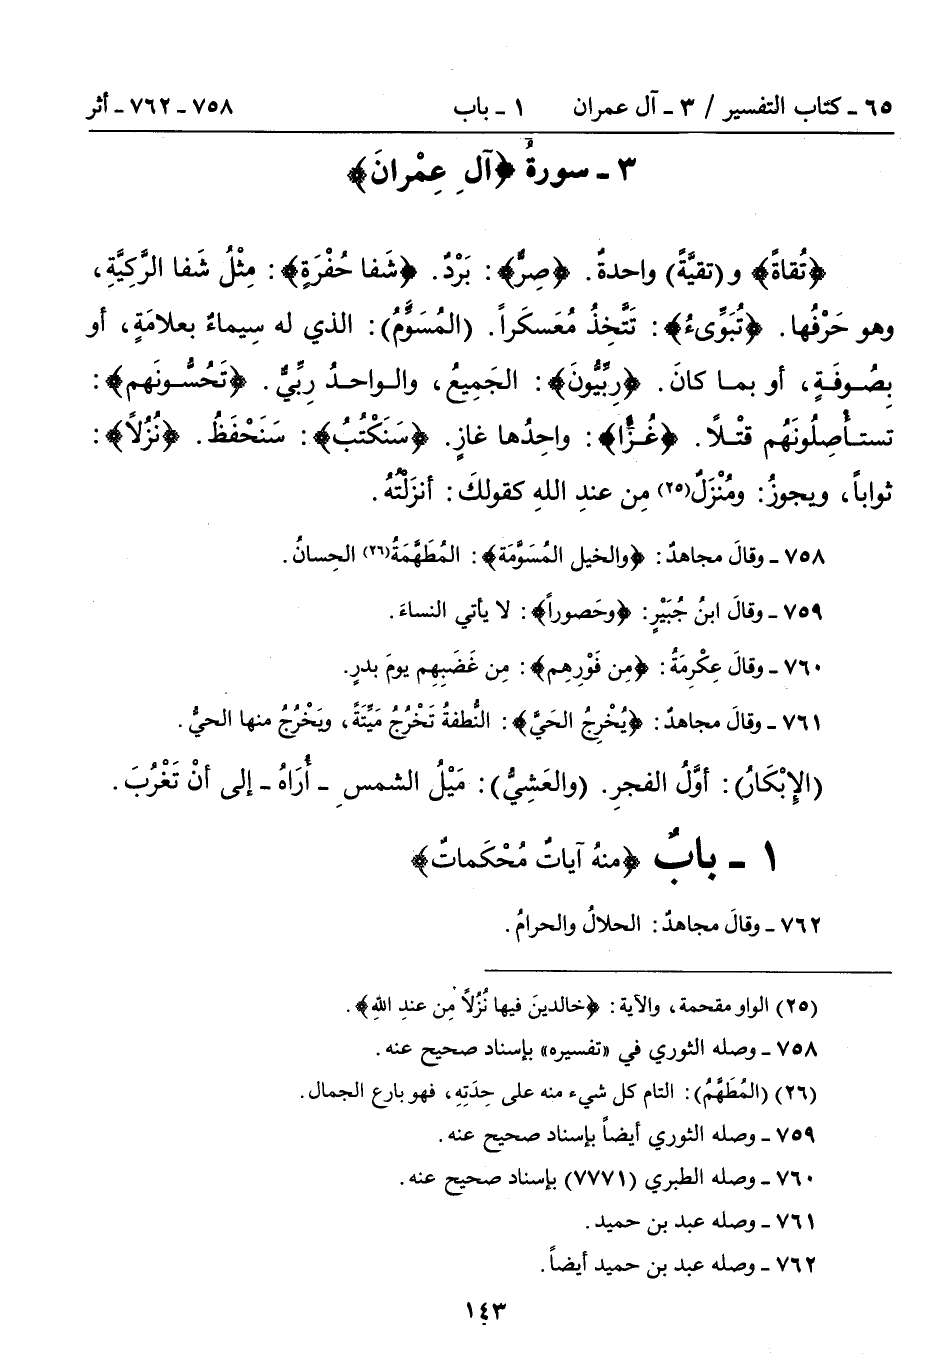 ٦٥ ـ كتاب التفسير / ٣ ـ آل عمران ١ ـ باب ٧٥٨ ـ ٧٦٢ ـ أثر
٣ ـ سورةُ ﴿آلِ عِمْرانَ﴾
﴿تُقاةً﴾ و(تقيَّةً) واحدةٌ. ﴿صِرٌّ﴾: بَرْدٌ. ﴿شَفا حُفْرَةٍ﴾: مِثْلُ شَفا الرَّكِيَّةِ،
وهو حَرْفُها. ﴿تُبَوِّىءُ﴾: تَتَّخِذُ مُعَسكَراً. (المُسَوَّمُ): الذي له سِيماءٌ بعلامَةٍ، أو
بِصُوفَةٍ، أو بما كانَ. ﴿رِبِّيُّونَ﴾: الجَمِيعُ، والواحدُ رِبِّيٌّ. ﴿تَحُسُّونَهم﴾:
تستأصِلُونَهُم قتْلاً. ﴿غُزًّا﴾: واحِدُها غازٍ. ﴿سَنَكْتُبُ﴾: سَنَحْفَظُ. ﴿نُزُلاً﴾:
ثواباً، ويجوزُ: ومُنْزَلٌ(٢٥) مِن عندِ اللهِ كقولكَ: أنزَلْتُهُ.
٧٥٨ ـ وقالَ مجاهدٌ: ﴿والخيل المُسَوَّمَة﴾: المُطَهَّمَةُ(٢٦) الحِسانُ.
٧٥٩ ـ وقالَ ابنُ جُبَيْرٍ: ﴿وحَصوراً﴾: لا يأتي النساءَ.
٧٦٠ ـ وقالَ عِكْرِمَةُ: ﴿مِن فَوْرِهِم﴾: مِن غَضَبِهِم يومَ بدرٍ.
٧٦١ ـ وقالَ مجاهدٌ: ﴿يُخْرِجُ الحَيَّ﴾: النُّطفةُ تَخْرُجُ مَيِّتَةً، ويَخْرُجُ منها الحيُّ.
(الإِبْكارُ): أوَّلُ الفجرِ. (والعَشِيُّ): مَيْلُ الشمسِ ـ أُرَاهُ ـ إلى أنْ تَغْرُبَ.
١ ـ بابٌ ﴿منهُ آياتٌ مُحْكَماتٌ﴾
٧٦٢ ـ وقالَ مجاهدٌ: الحلالُ والحرامُ.
(٢٥) الواو مقحمة، والآية: ﴿خالدينَ فيها نُزُلاً مِن عندِ اللهِ﴾.
٧٥٨ ـ وصله الثوري في «تفسيره» بإسناد صحيح عنه.
(٢٦) (المُطَهَّمُ): التام كل شيء منه على حِدَتِهِ، فهو بارع الجمال.
٧٥٩ ـ وصله الثوري أيضاً بإسناد صحيح عنه.
٧٦٠ ـ وصله الطبري (٧٧٧١) بإسناد صحيح عنه.
٧٦١ ـ وصله عبد بن حميد.
٧٦٢ ـ وصله عبد بن حميد أيضاً.
١٤٣